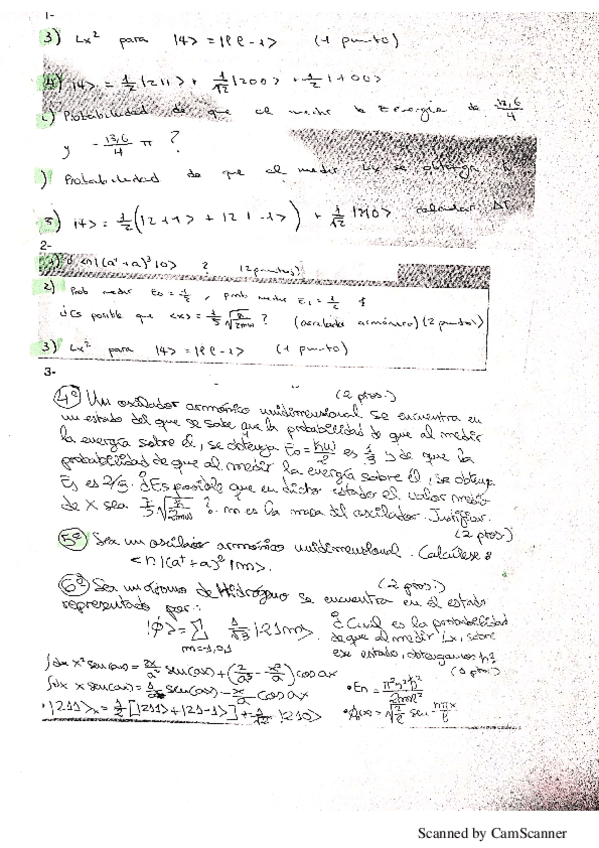 1-
3) Lx² para |ψ> = |ℓ ℓ-1> (1 punto)
4) |ψ> = 1/2 |211> + 1/√2 |200> + 1/2 |100>
Probabilidad de que al medir la Energía de 13,6/4
y -13,6/4 π ?
) Probabilidad de que al medir Lx se obtenga
5) |ψ> = 1/2 (|211> + |21-1>) + 1/√2 |210> calcular
2-
<n|(a⁺+a)³|0> ? (2 puntos)
2) Prob medir E₀ = 1/2, prob medir E₁ = 1/2
¿Es posible que <x> = 1/5 √(ħ/2mω) ? (oscilador armónico) (2 puntos)
3) Lx² para |ψ> = |ℓ ℓ-1> (1 punto)
3-
4º Un oscilador armónico unidimensional se encuentra en (2 ptos.)
un estado del que se sabe que la probabilidad de que al medir
la energía sobre él, se obtenga E₀ = ħω/2 es 1/3 y de que la
probabilidad de que al medir la energía sobre él, se obtenga
es 2/3. ¿Es posible que en dicho estado el valor medio
de X sea 7/5 √(ħ/2mω) ? m es la masa del oscilador. Justificar.
5º Sea un oscilador armónico unidimensional. Calcúlese: (2 ptos.)
<n|(a⁺+a)³|m>.
6º Sea un átomo de Hidrógeno se encuentra en el estado (2 ptos.)
representado por:
|ϕ> = Σ m=-1,0,1 1/√3 |21m> ¿Cuál es la probabilidad
de que al medir Lx, sobre
ese estado, obtengamos ħ?
∫dx x² sen(ax) = 2x/a² sen(ax) + (2/a³ - x²/a) cos ax
∫dx x sen(ax) = 1/a² sen(ax) - x/a cos ax
• En = π²n²ħ²/2mL²
• |211>x = 1/2 [|211> + |21-1>] + 1/√2 |210>
= √(2/L) sen nπx/L
Scanned by CamScanner